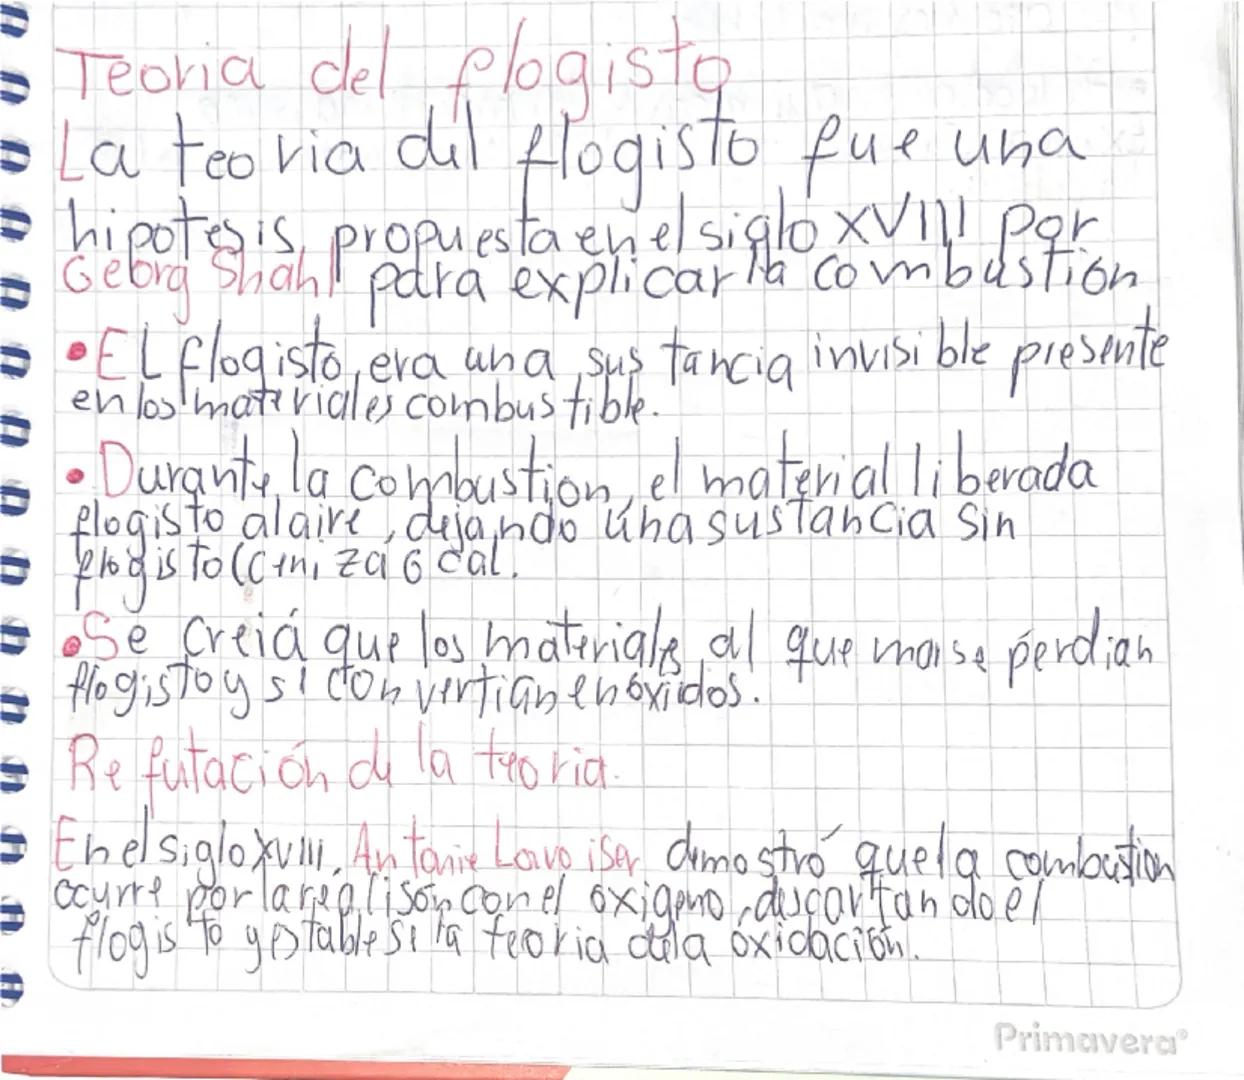 Teoria del flogisto
La teoria del flogisto fue una
hipotesis, propuesta en el siglo XVIII por
Georg Shahl para explicar la combustion
• EL flogisto, era una sustancia invisible presente
en los materiales combustible.
• Durante, la combustion, el material liberada
flogisto al aire, dejando una sustancia sin
flogisto ((ceniza ó cal.
• Se creiá que los materiales, al que marse perdian
flogisto y si convertian en óxidos.
Refutación de la teoria.
En el siglo XVIII, Antonie Lavoiser demostró que la combustion
ocurre por la con el oxigeno, descartando el
flogisto y la teoria dela oxidación.
Primavera®